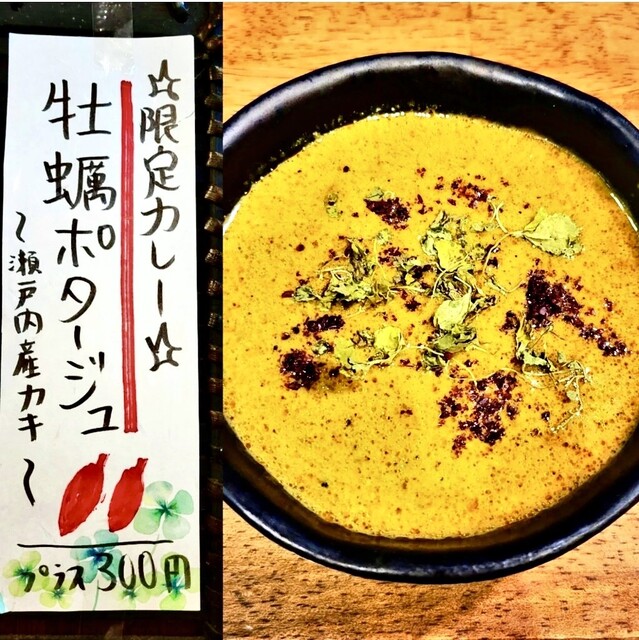 ☆限定カレー☆
牡蠣ポタージュ
～瀬戸内産カキ～
プラス300円